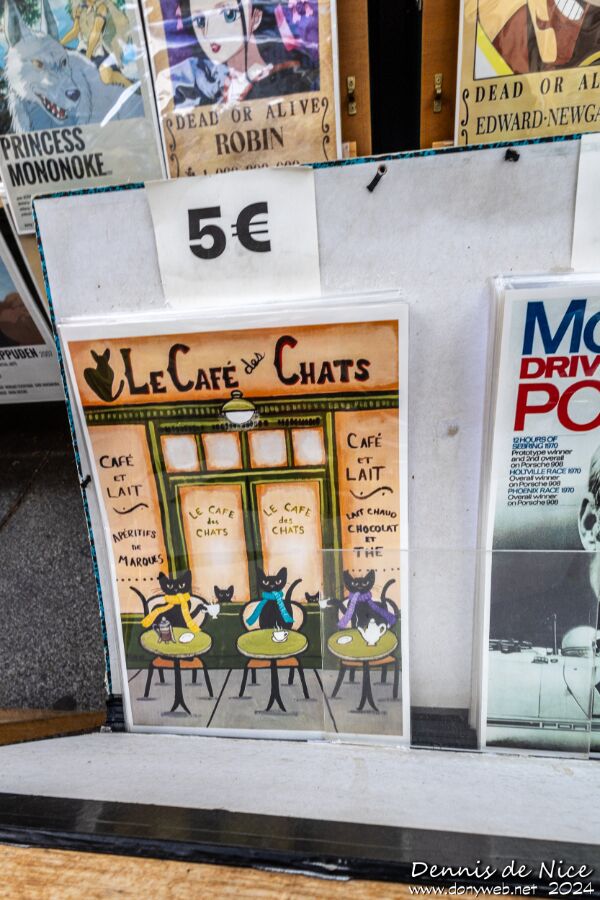 PRINCESS
MONONOKE
DEAD OR ALIVE
ROBIN
DEAD OR AL
EDWARD·NEWGA
5€
PPUDEN
LE CAFÉ des CHATS
CAFÉ
ET
LAIT
APÉRITIFS
DE
MARQUES
LE CAFE
des
CHATS
LE CAFE
des
CHATS
CAFÉ
ET
LAIT
LAIT CHAUD
CHOCOLAT
ET
THÉ
Mo
DRIV
PO
12 HOURS OF
SEBRING 1970
Prototype winner
and 2nd overall
on Porsche 908
HOLTVILLE RACE 1970
Overall winner
on Porsche 908
PHOENIX RACE 1970
Overall winner
on Porsche 908
Dennis de Nice
www.donyweb.net 2024